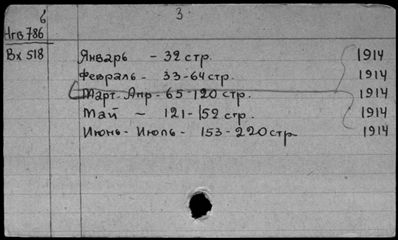 6
3
Нгв 786
Вх 518
Январь - 32 стр. 1914
Февраль - 33-64 стр. 1914
Март. Апр - 65-120 стр. 1914
Май - 121-152 стр. 1914
Июнь-Июль - 153-220 стр 1914